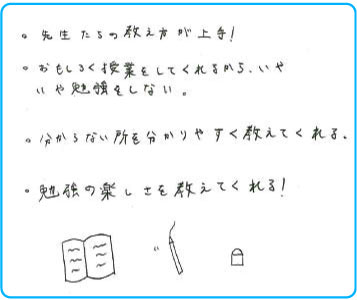 ・先生たちの教え方が上手!
・おもしろく授業をしてくれるから、いや
いや勉強をしない。
・分からない所を分かりやすく教えてくれる。
・勉強の楽しさを教えてくれる!